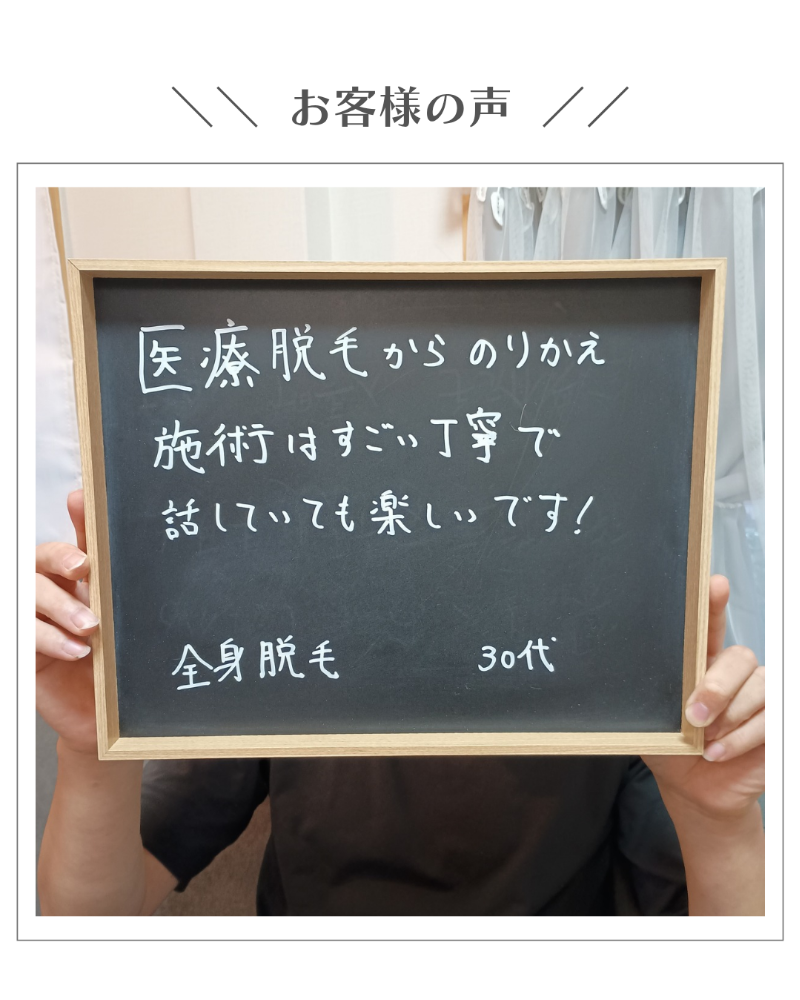 \\ お客様の声 //
医療脱毛からのりかえ
施術はすごい丁寧で
話していても楽しいです!
全身脱毛 30代